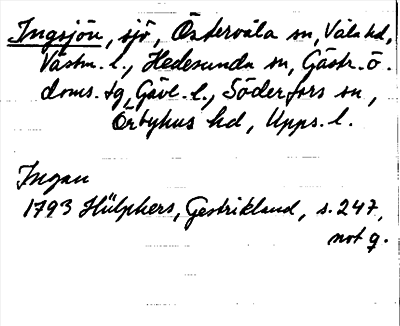 Ingsjön, sjö, Östervåla sn, Våla hd,
Västm. l., Hedesunda sn, Gästr. ö.
doms. sg, Gävl. l., Söderfors sn,
Örbyhus hd, Upps. l.
Ingan
1793 Hülphers, Gestrikland, s. 247,
not q.